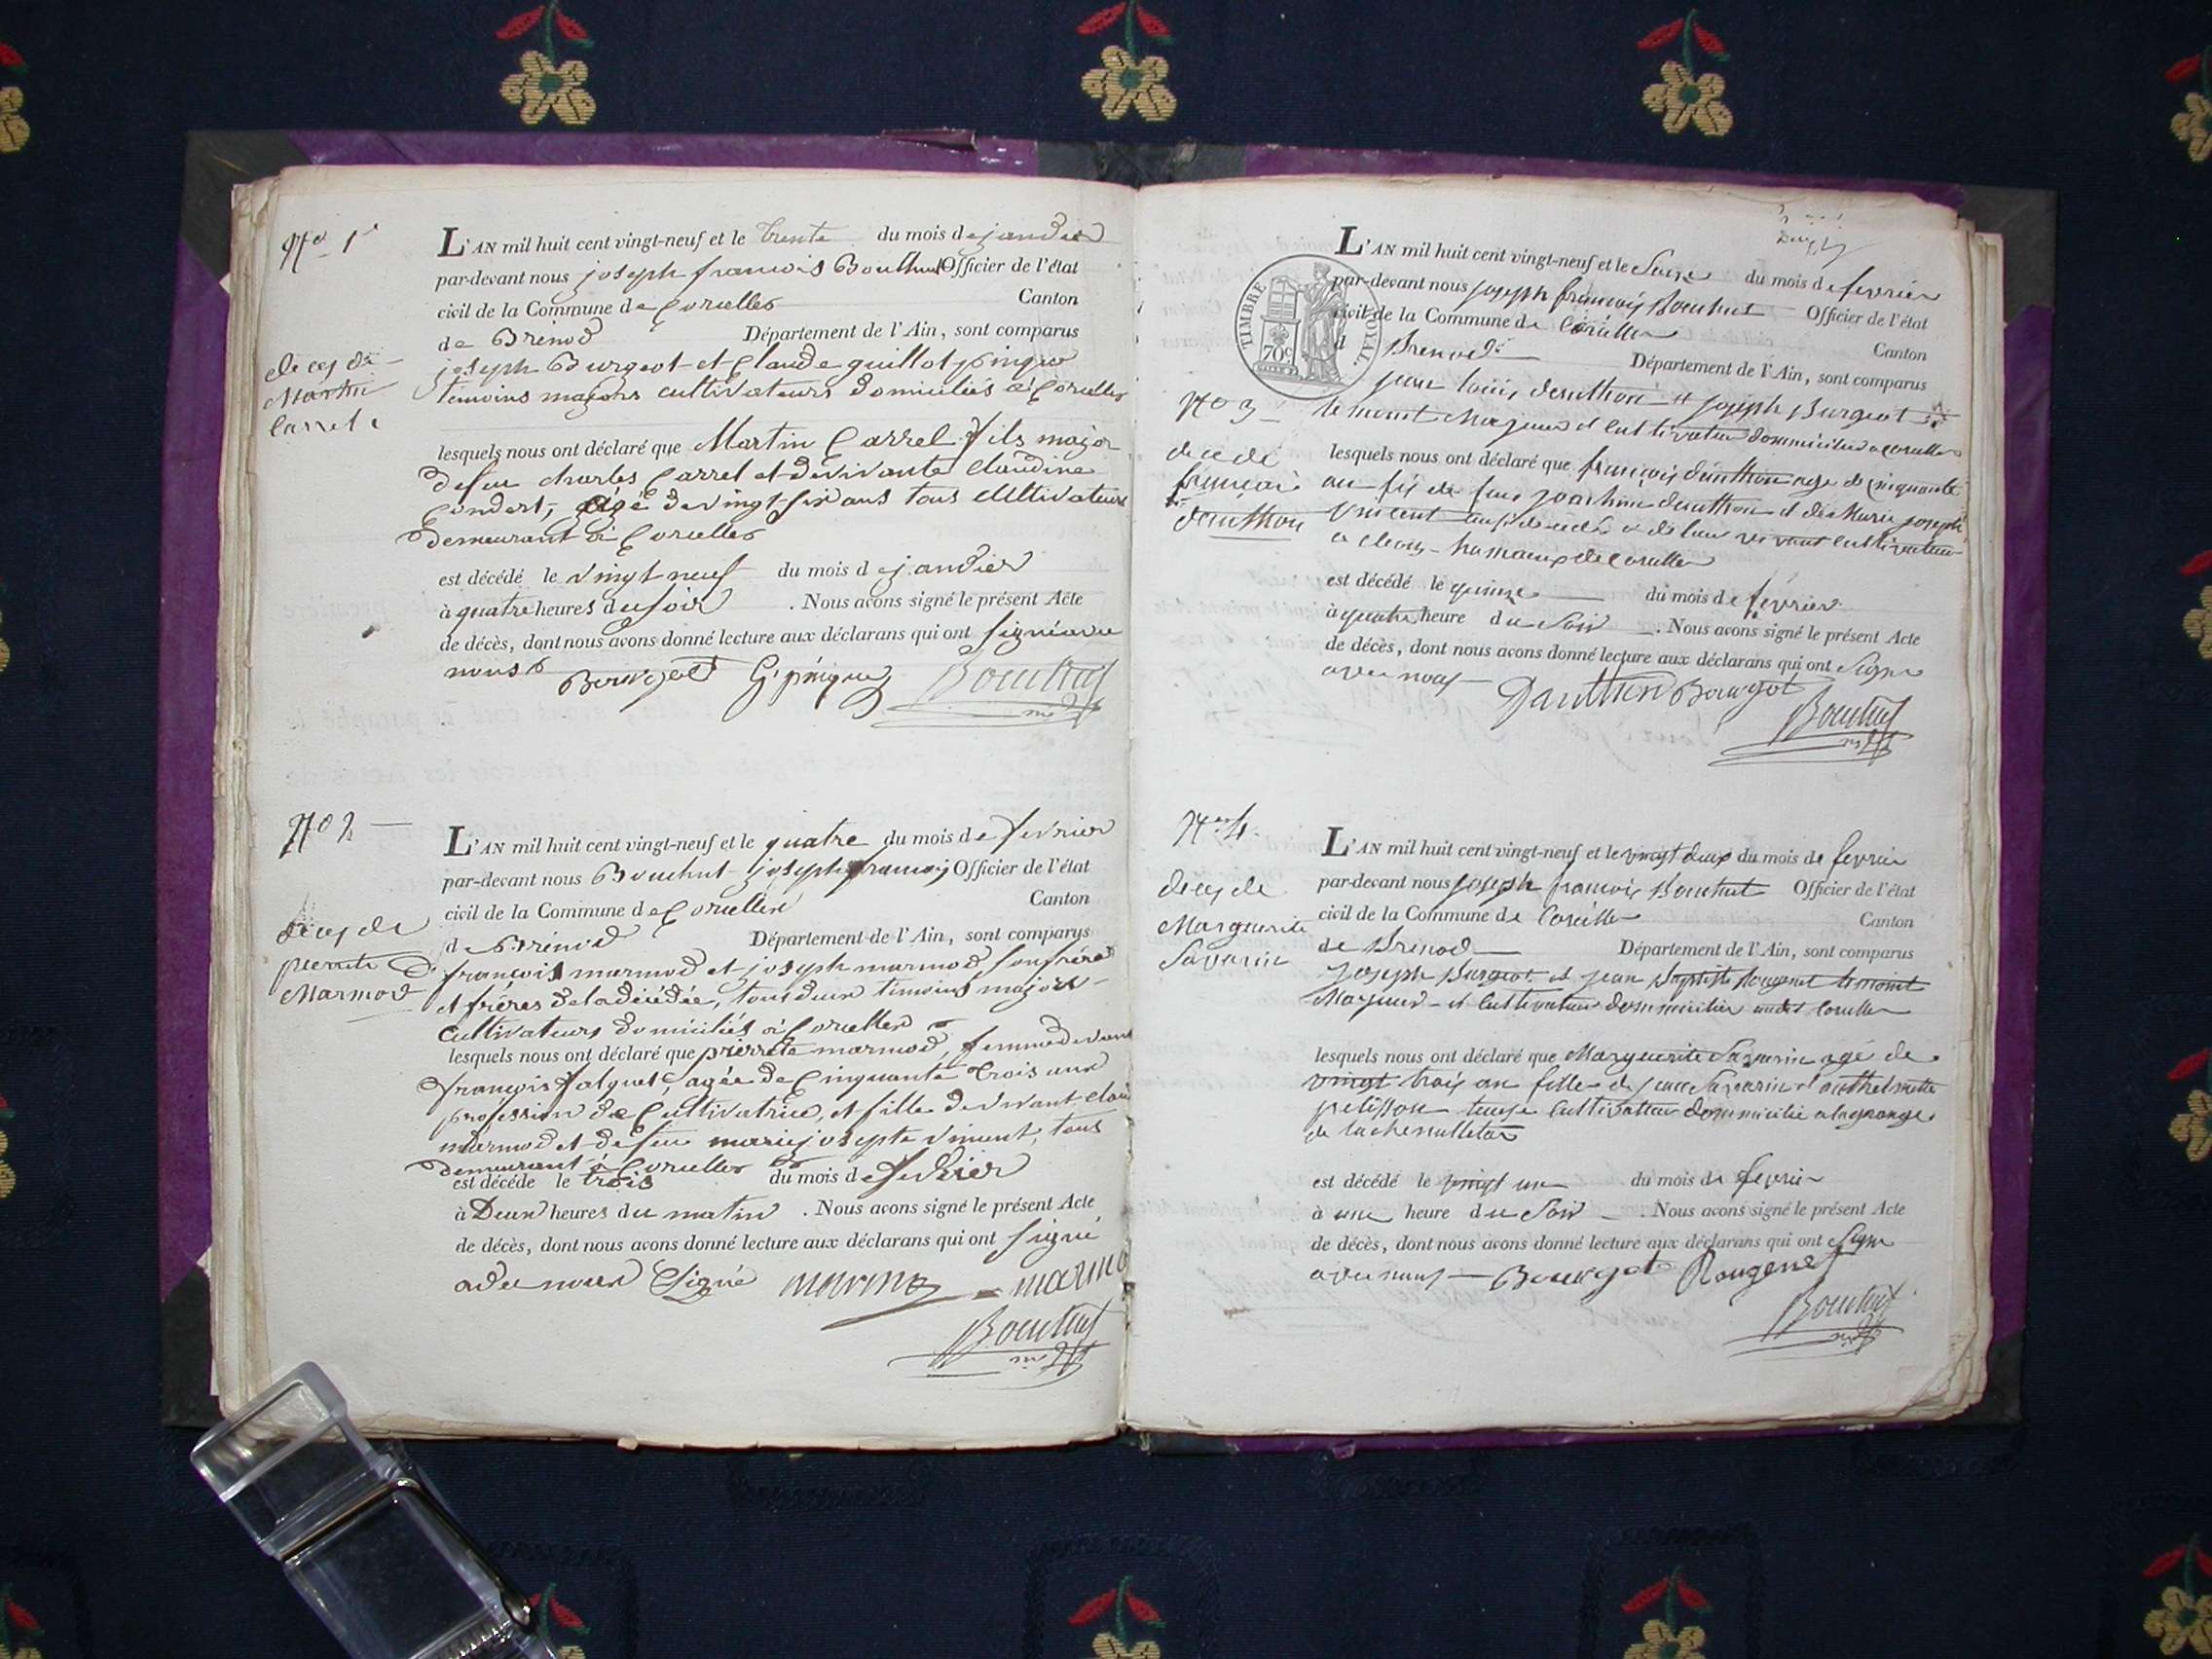 No 1er
L'AN mil huit cent vingt-neuf et le trente du mois de janvier
par-devant nous joseph francois Bouthud Officier de l'état
civil de la Commune de Corcelles Canton
de Brenod Département de l'Ain, sont comparus
joseph Burgeot et Claude guillot pingue
temoins majors cultivateurs domiciliés à Corcelles
deces de
Martin
Carrel
lesquels nous ont déclaré que Martin Carrel fils major
defeu charles Carrel et de vivante Claudine
agé de vingt six ans tous cultivateurs
demeurant à Corcelles
est décédé le vingt neuf du mois de janvier
à quatre heures du soir . Nous avons signé le présent Acte
de décès, dont nous avons donné lecture aux déclarans qui ont signé avec
nous
Bourgeot G. pingue Bouchut
No 2
L'AN mil huit cent vingt-neuf et le quatre du mois de fevrier
par-devant nous Bouchut joseph françois Officier de l'état
civil de la Commune de Corcelles Canton
de Brénod Département de l'Ain, sont comparus
deces de
pierrette
Marmod
françois marmod et joseph marmod son frère
et frères de la décédée, tous deux témoins majors
cultivateurs domiciliés à Corcelles
lesquels nous ont déclaré que pierrete marmod, femme de vivant
françois falquet, agée de Cinquante trois ans
profession de Cultivatrice, et fille de vivant
marmod et de feu marie josepte vincent, tous
demeurant à Corcelles
est décédé le trois du mois de fevrier
à Deux heures du matin . Nous avons signé le présent Acte
de décès, dont nous avons donné lecture aux déclarans qui ont signé
avec nous Signé marmod marmo
Bouchut
L'AN mil huit cent vingt-neuf et le Seize du mois de fevrier
par-devant nous joseph françois Bouchut Officier de l'état
civil de la Commune de Corcelles Canton
d Brenod Département de l'Ain, sont comparus
TIMBRE ROYAL
70c
jean louis denthon et joseph Burgeot
temoint Majeurs et Cultivateur dommicilies a corcelles
No 3
decé de
françois
denthon
lesquels nous ont déclaré que françois denthon age de cinquante
an fis de feus joachim denthon et de Marie josephe
Vincent aussi decedés de leur vivant Cultivateur
a cleon hamaux de Corcelles
est décédé le quinze du mois de février
à quatre heure du Soir . Nous avons signé le présent Acte
de décès, dont nous avons donné lecture aux déclarans qui ont Signe
avec nous
Danthon Bourgeot
Bouchut
No 4.
L'AN mil huit cent vingt-neuf et le vingt deux du mois de fevrier
par-devant nous joseph françois Bouchut Officier de l'état
civil de la Commune de Corcelles Canton
de Brenod Département de l'Ain, sont comparus
deces de
Marguerite
Savarin
joseph Burgeot et jean Baptiste Rougemet temoint
Majeurs et Cultivateur dommicilier audit Corcelles
lesquels nous ont déclaré que Marguerite Savarin agé de
vingt trois an fille de jean Savarin et anthelmette
pelisson Cultivatteur dommicilié a lagrange
de
est décédé le vingt un du mois de fevrier
à une heure du Soir . Nous avons signé le présent Acte
de décès, dont nous avons donné lecture aux déclarans qui ont Signe
avec nous Bourgeot Rougemet
Bouchut